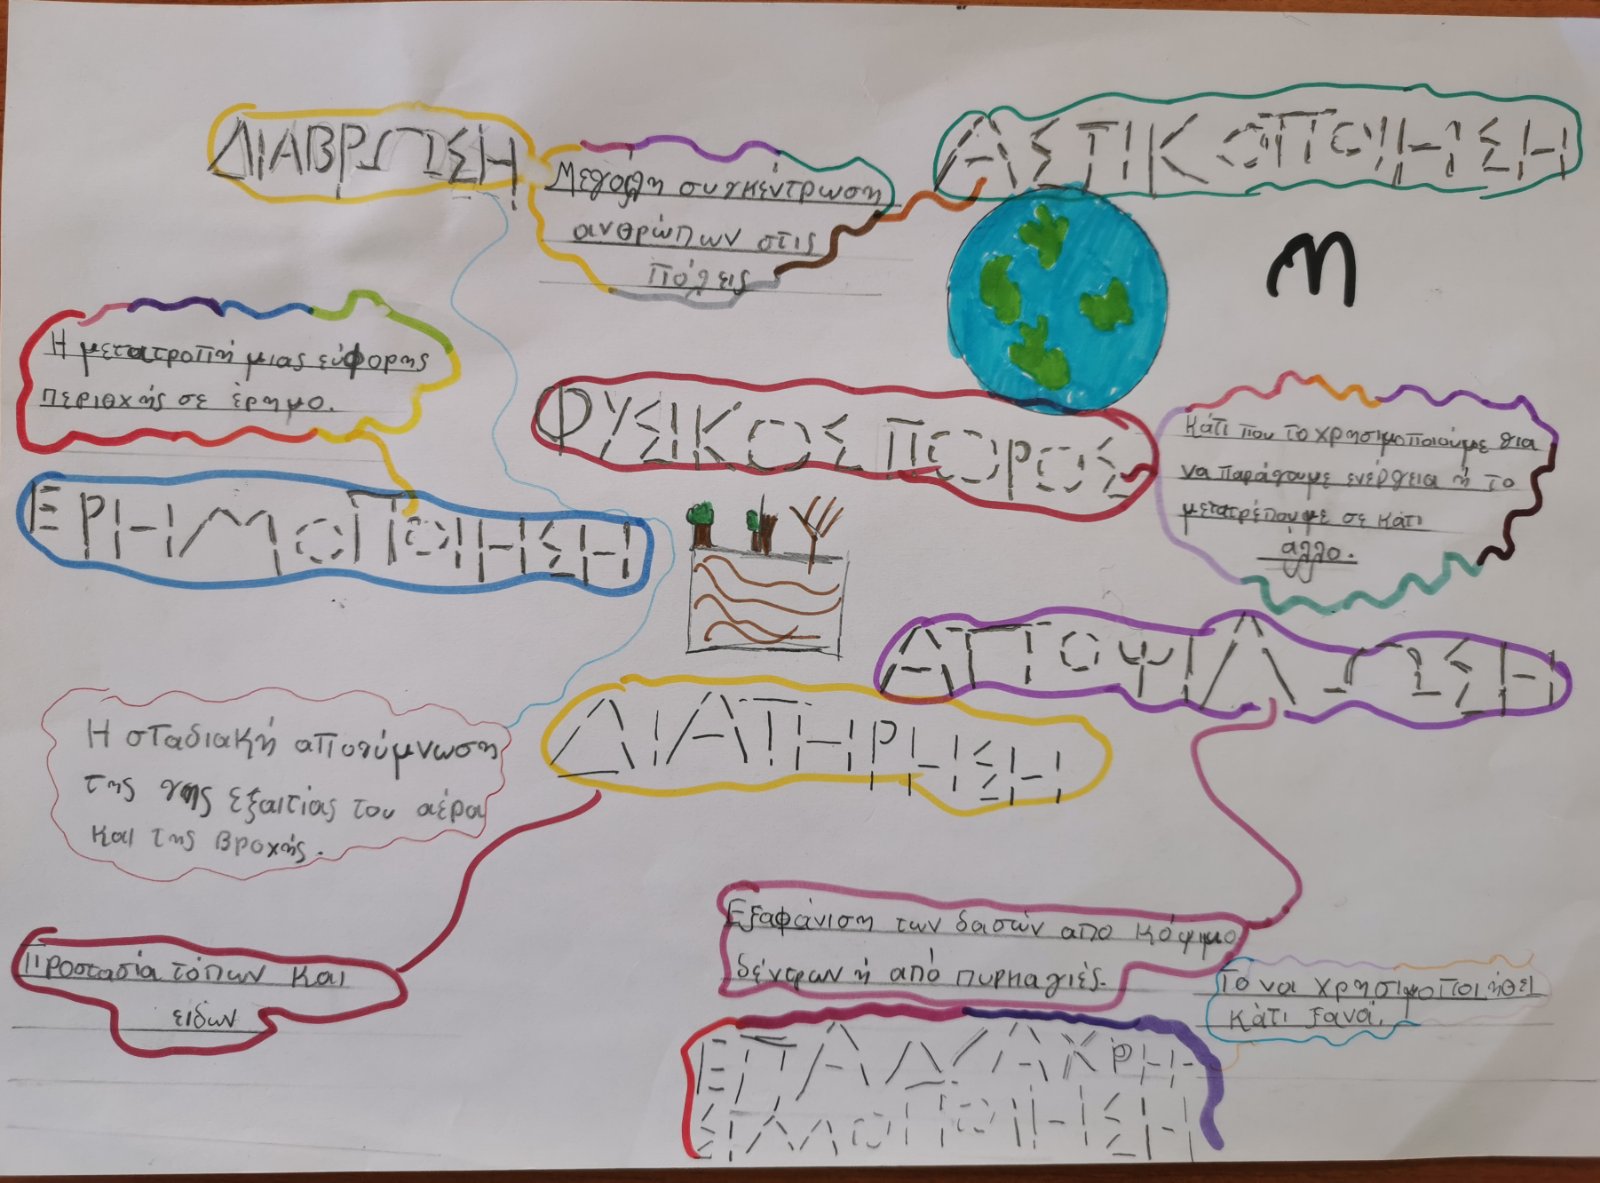 ΔΙΑΒΡΩΣΗ
ΑΣΤΙΚΟΠΟΙΗΣΗ
Μεγάλη συγκέντρωση
ανθρώπων στις
πόλεις
η
Η μετατροπή μιας εύφορης
περιοχής σε έρημο.
ΦΥΣΙΚΟΣ ΠΟΡΟΣ
Κάτι που το χρησιμοποιούμε για
να παράγουμε ενέργεια ή το
μετατρέπουμε σε κάτι
άλλο.
ΕΡΗΜΟΠΟΙΗΣΗ
ΑΠΟΨΙΛΩΣΗ
ΔΙΑΤΗΡΗΣΗ
Η σταδιακή απογύμνωση
της γης εξαιτίας του αέρα
και της βροχής.
Εξαφάνιση των δασών από κόψιμο
δέντρων ή από πυρκαγιές.
Προστασία τόπων και
ειδων
Το να χρησιμοποιηθεί
κάτι ξανά.
ΕΠΑΝΑΧΡΗ
ΣΙΜΟΠΟΙΗΣΗ